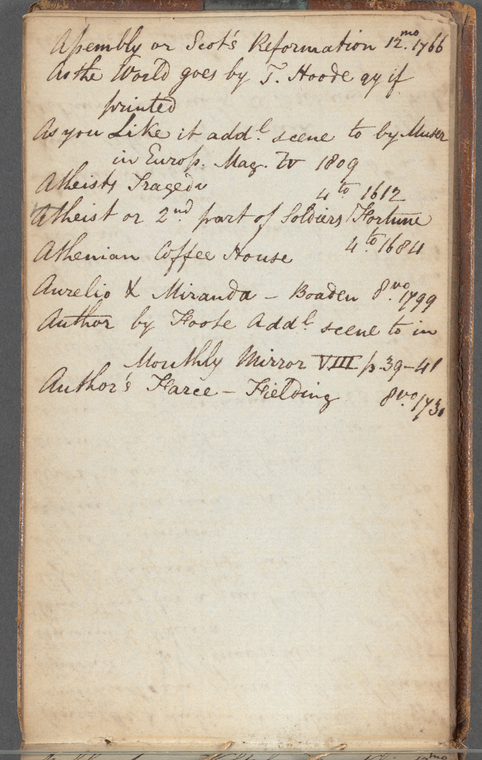 Assembly or Scot's Reformation 12.mo 1766
As the World goes by T. Hoode qy if
printed
As you Like it add.l scene to by Muser
in Europ. Mag. 1809
Atheists Tragedy
4.to 1612
Atheist or 2nd part of Soldiers Fortune
4.to 1684
Athenian Coffee House
Aurelio & Miranda – Boaden 8.vo 1799
Author by Foote Add.l scene to in
Monthly Mirror VIII p. 39–41
Author's Farce – Fielding 8.vo 1730